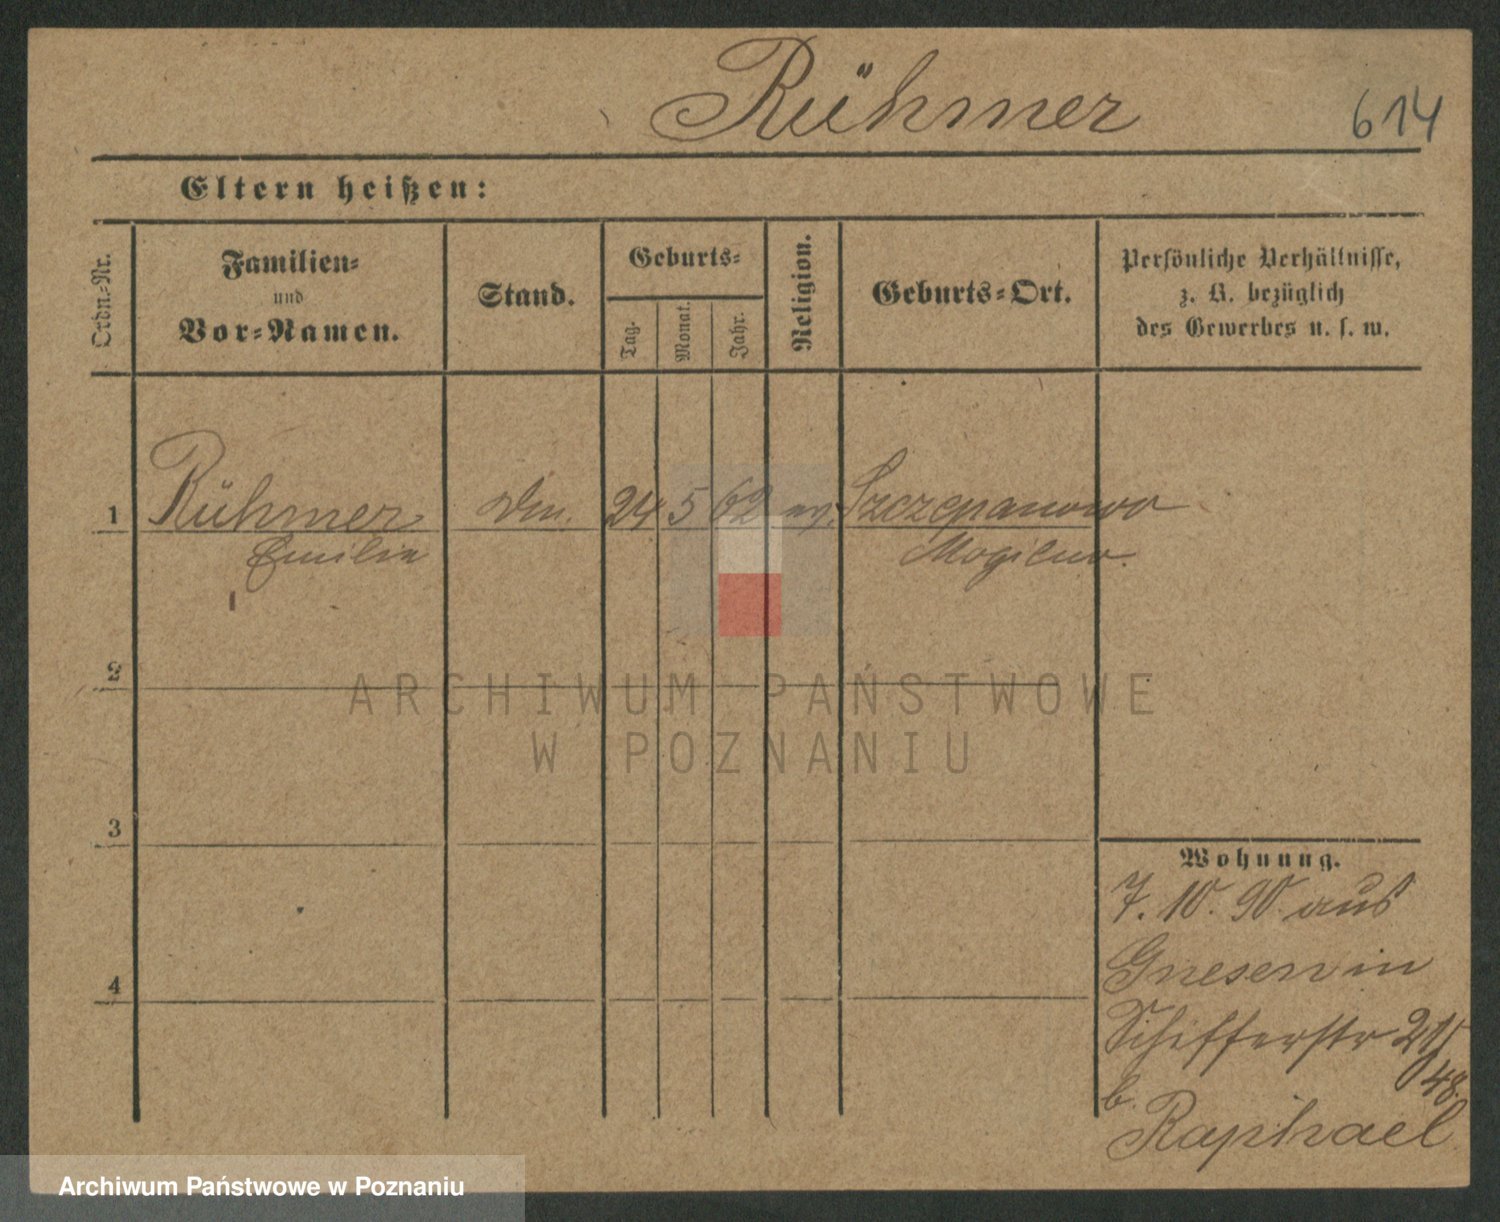 Rühmer
614
Eltern heißen:
Ordn.-Nr.
Familien-
und
Vor-Namen.
Stand.
Geburts-
Tag.
Monat.
Jahr.
Religion.
Geburts-Ort.
Persönliche Verhältnisse,
z. B. bezüglich
des Gewerbes u. s. w.
1 Rühmer 24 5 62 ev. Szczepanowo
Emilie Mogilno.
2
ARCHIWUM PAŃSTWOWE
W POZNANIU
3
4
Wohnung.
7. 10. 90 aus
Gnesen in
Schifferstr 21/
48.
b.
Raphael
Archiwum Państwowe w Poznaniu